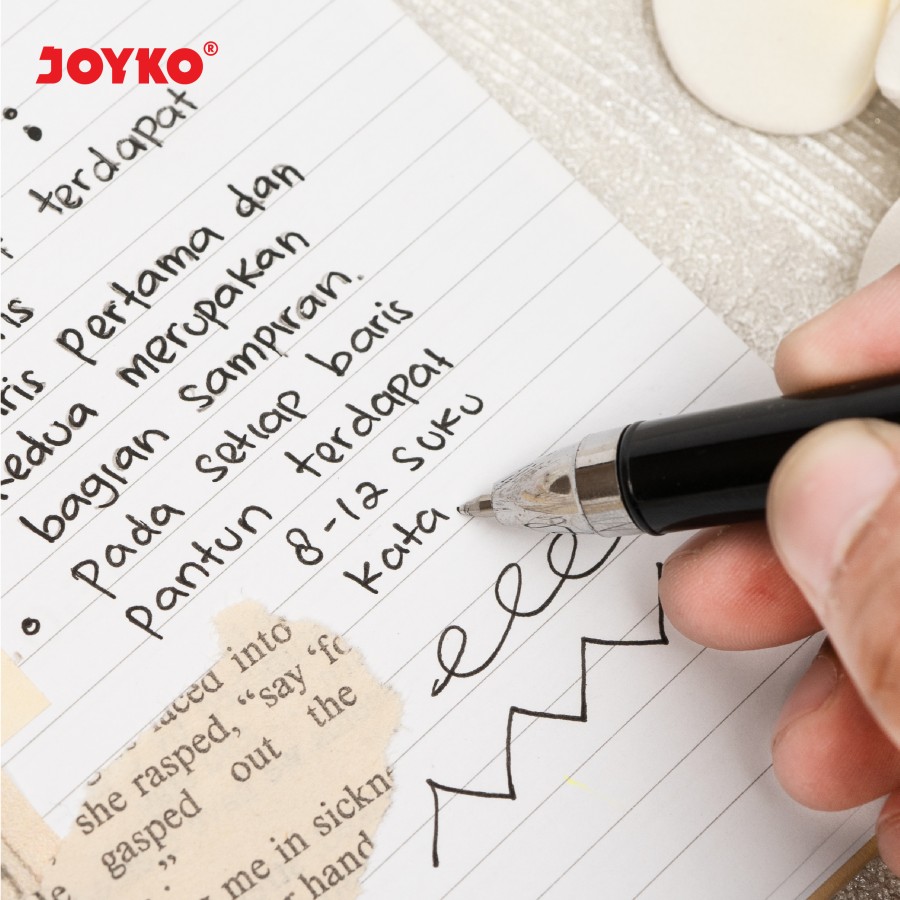 JOYKO®
terdapat
pertama dan
kedua merupakan
bagian sampiran.
• Pada setiap baris
pantun terdapat
8-12 suku
kata
into
she rasped, "say
gasped out the
"
me in
hand